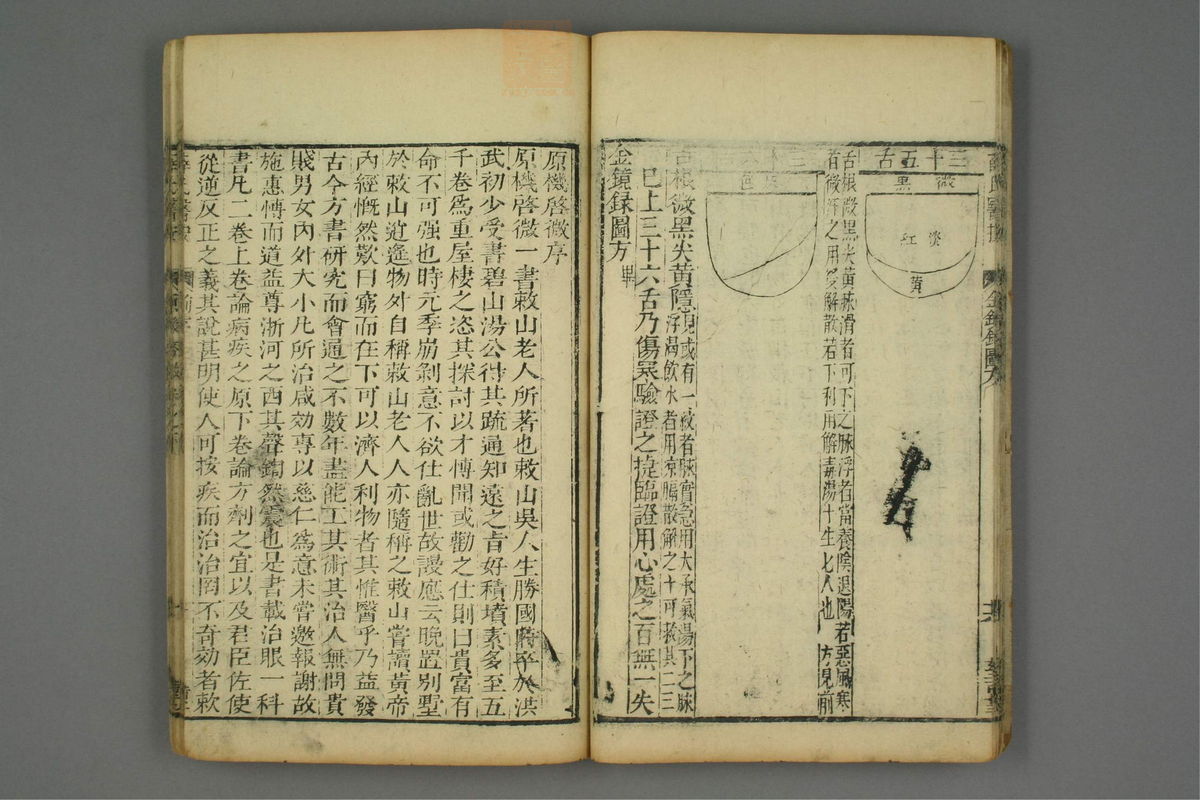 三十五舌
微黑
淡紅
黃
舌根微黑尖黃脉滑者可下之脉浮者當養陰退陽若惡風寒
者微汗之用雙解散若下利用解毒湯十生七八也 方見前
三十
舌根微黑尖黃隱見或有一紋者脉實急用大承氣湯下之脉
浮渴飲水者用凉膈散解之十可救其二三
已上三十六舌乃傷寒驗證之捷臨證用心處之百無一失
金鏡錄圖方畢
金鏡錄圖方
原機啓微序
原機啓微一書敕山老人所著也敕山吳人生勝國時卒於洪
武初少受書碧山湯公得其疏通知遠之旨好積墳素多至五
千卷爲重屋棲之恣其探討以才傳聞或勸之仕則曰貴富有
命不可强也時元季崩剝意不欲仕亂世故謾應云晚置别墅
於敕山逍遙物外自稱敕山老人人亦隨稱之敕山嘗讀黃帝
內經慨然歎曰窮而在下可以濟人利物者其惟醫乎乃益發
古今方書研究而會通之不數年盡能工其術其治人無問貴
賤男女內外大小凡所治咸効專以慈仁爲意未嘗邀報謝故
施惠愽而道益尊浙河之西其聲鍧然震也是書載治眼一科
書凡二卷上卷論病疾之原下卷論方劑之宜以及君臣佐使
從逆反正之義其說甚明使人可按疾而治治罔不奇効者敕